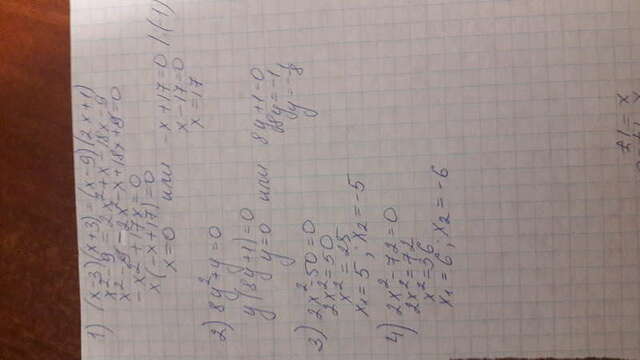 1) (x-3)(x+3)=(x-9)(2x+1)
x²-9=2x²+x-18x-9
x²-9-2x²-x+18x+9=0
-x²+17x=0
x(-x+17)=0
x=0 или -x+17=0 |·(-1)
x-17=0
x=17
2) 8y²+y=0
y(8y+1)=0
y=0 или 8y+1=0
8y=-1
3) 2x²-50=0
2x²=50
x²=25
x₁=5; x₂=-5
4) 2x²-72=0
2x²=72
x²=36
x₁=6; x₂=-6